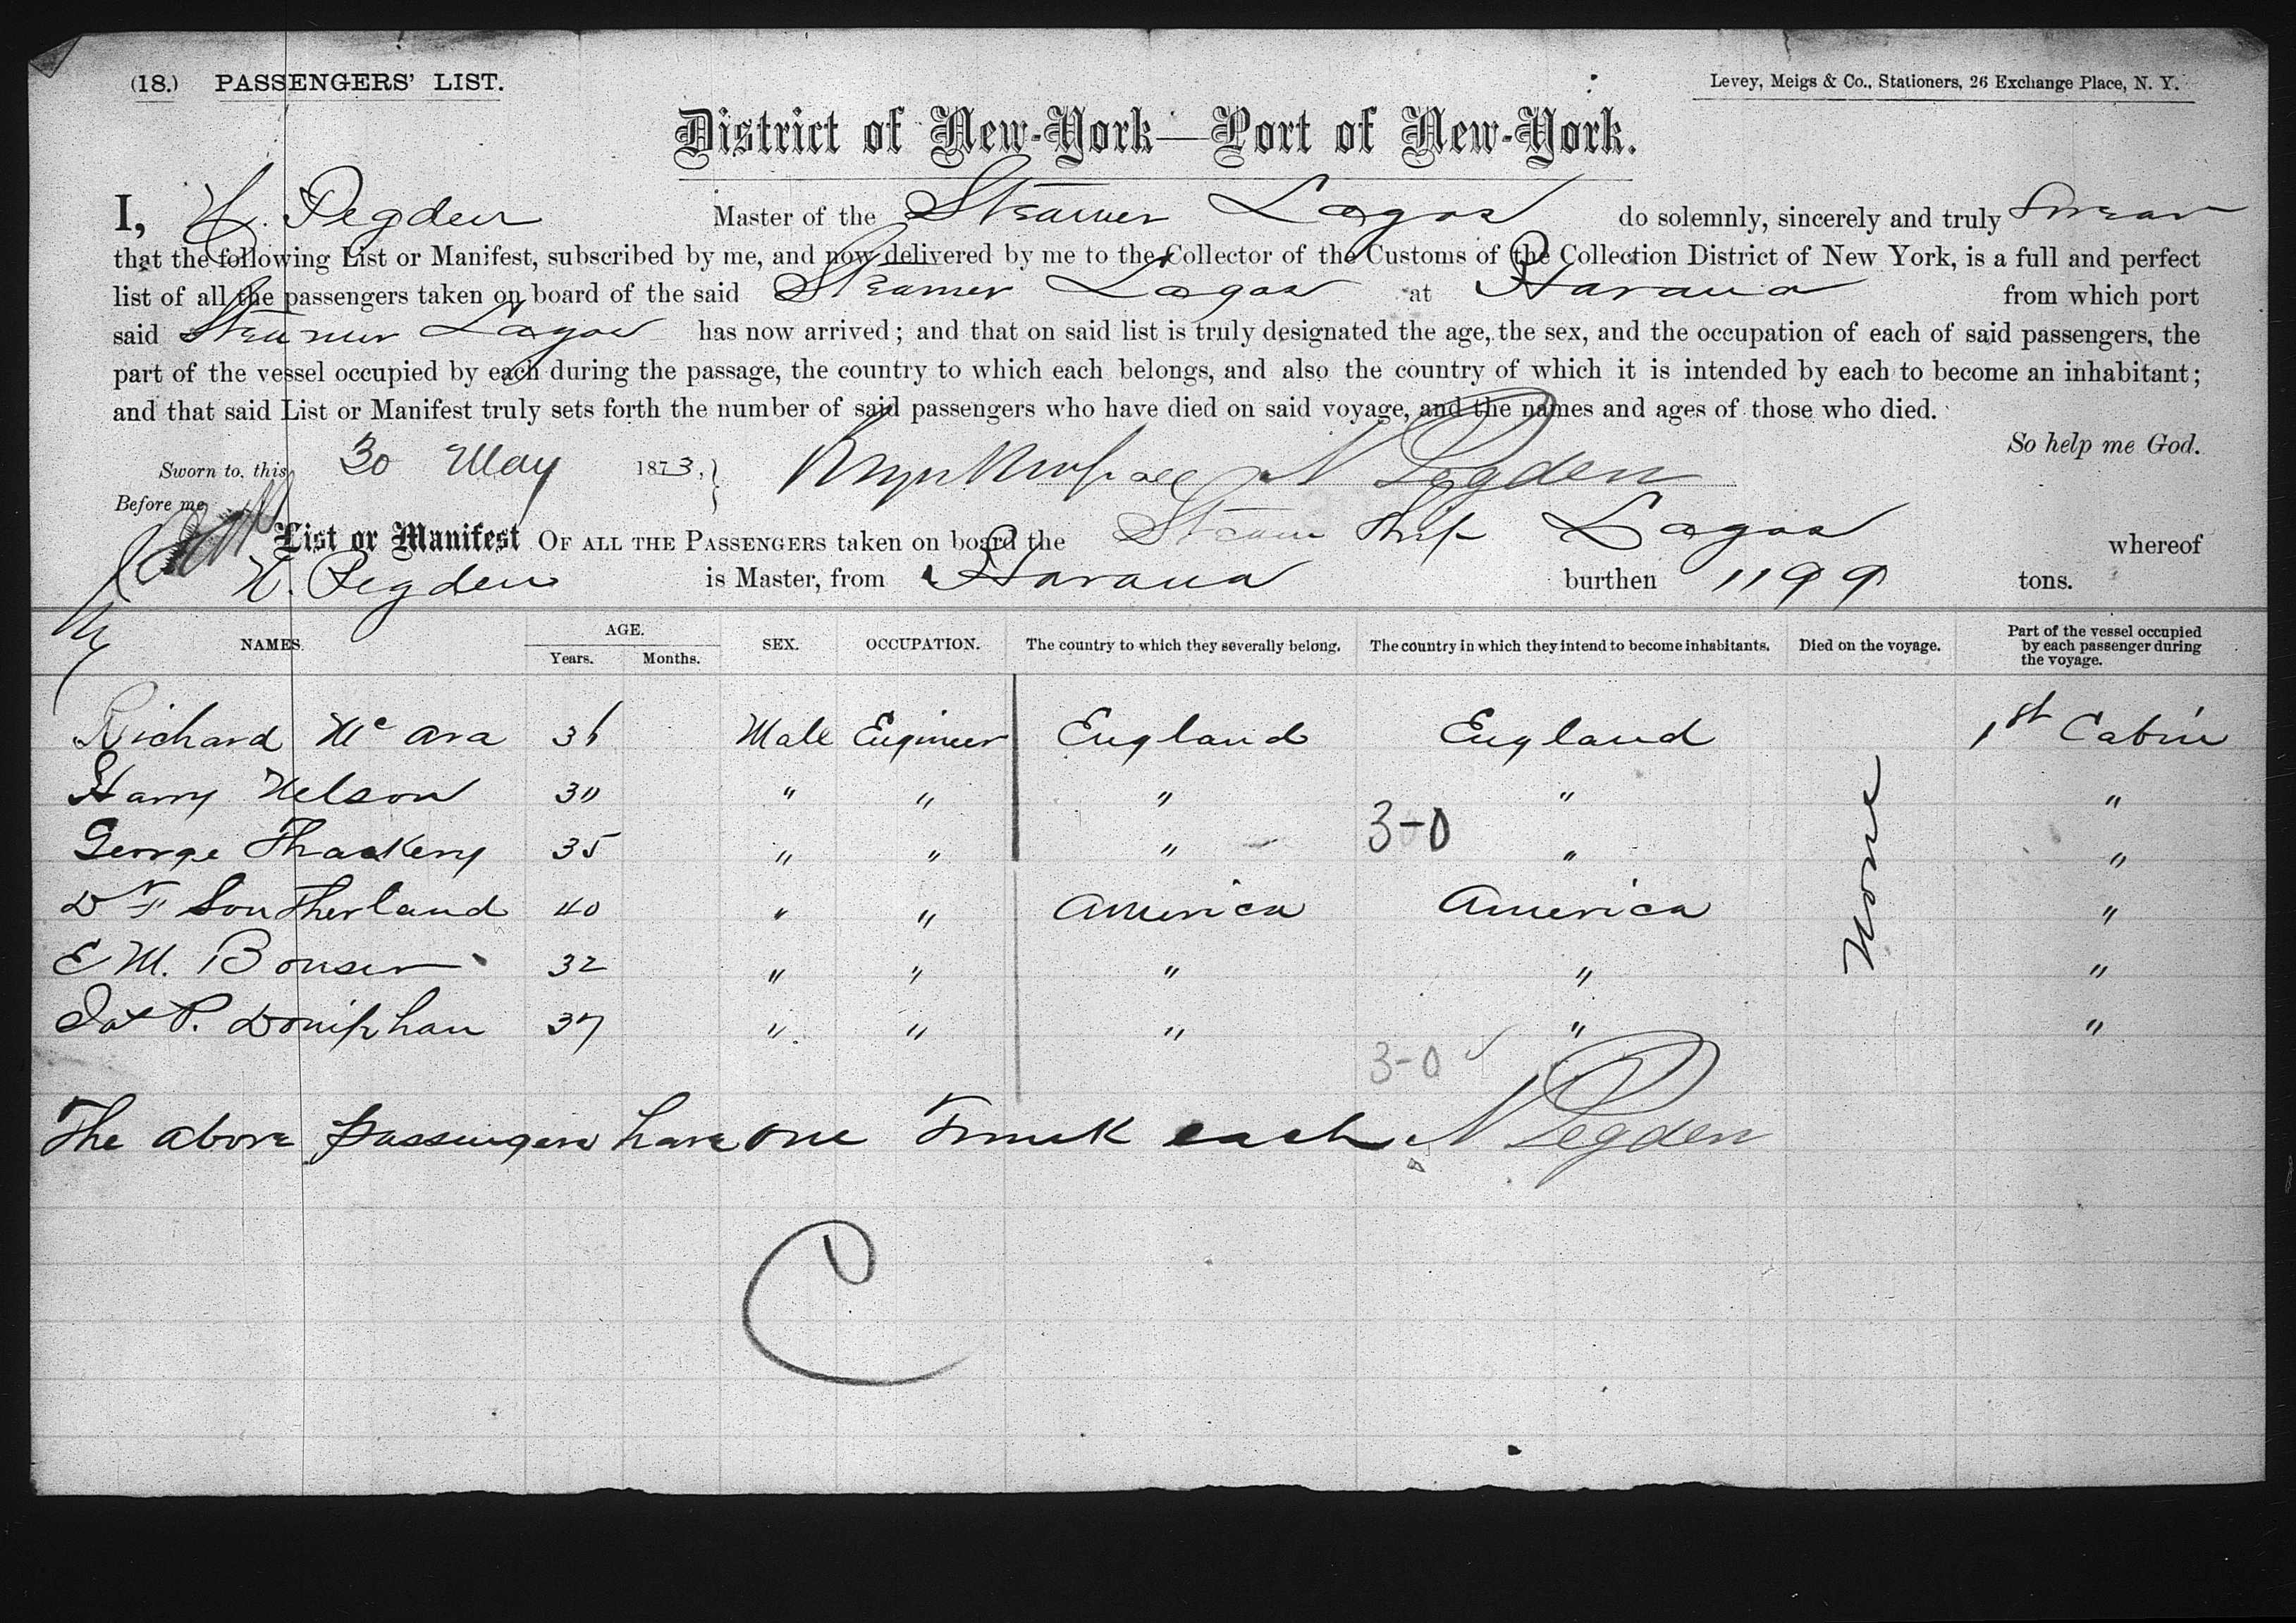 (18.) PASSENGERS' LIST.
Levey, Meigs & Co., Stationers, 26 Exchange Place, N. Y.
District of New-York—Port of New-York.
I, N. Pegden Master of the Steamer Lagos do solemnly, sincerely and truly Swear
that the following List or Manifest, subscribed by me, and now delivered by me to the Collector of the Customs of the Collection District of New York, is a full and perfect
list of all the passengers taken on board of the said Steamer Lagos at Havana from which port
said Steamer Lagos has now arrived; and that on said list is truly designated the age, the sex, and the occupation of each of said passengers, the
part of the vessel occupied by each during the passage, the country to which each belongs, and also the country of which it is intended by each to become an inhabitant;
and that said List or Manifest truly sets forth the number of said passengers who have died on said voyage, and the names and ages of those who died.
So help me God.
Sworn to, this 30 May 1873, } N Pegden
Before me
List or Manifest OF ALL THE PASSENGERS taken on board the Steam Ship Lagos whereof
N. Pegden is Master, from Havana burthen 1199 tons.
NAMES. AGE. Years. Months. SEX. OCCUPATION. The country to which they severally belong. The country in which they intend to become inhabitants. Died on the voyage. Part of the vessel occupied by each passenger during the voyage.
Richard Mc Ara 36 Male Engineer England England 1st Cabin
Harry Nelson 30 " " " " "
George Thackery 35 " " " 3-0 " "
D F Southerland 40 " " America America "
E M. Bonser 32 " " " " "
P. Doniphan 37 " " " " "
None
3-0
The above passengers have one Trunk each N Pegden
C